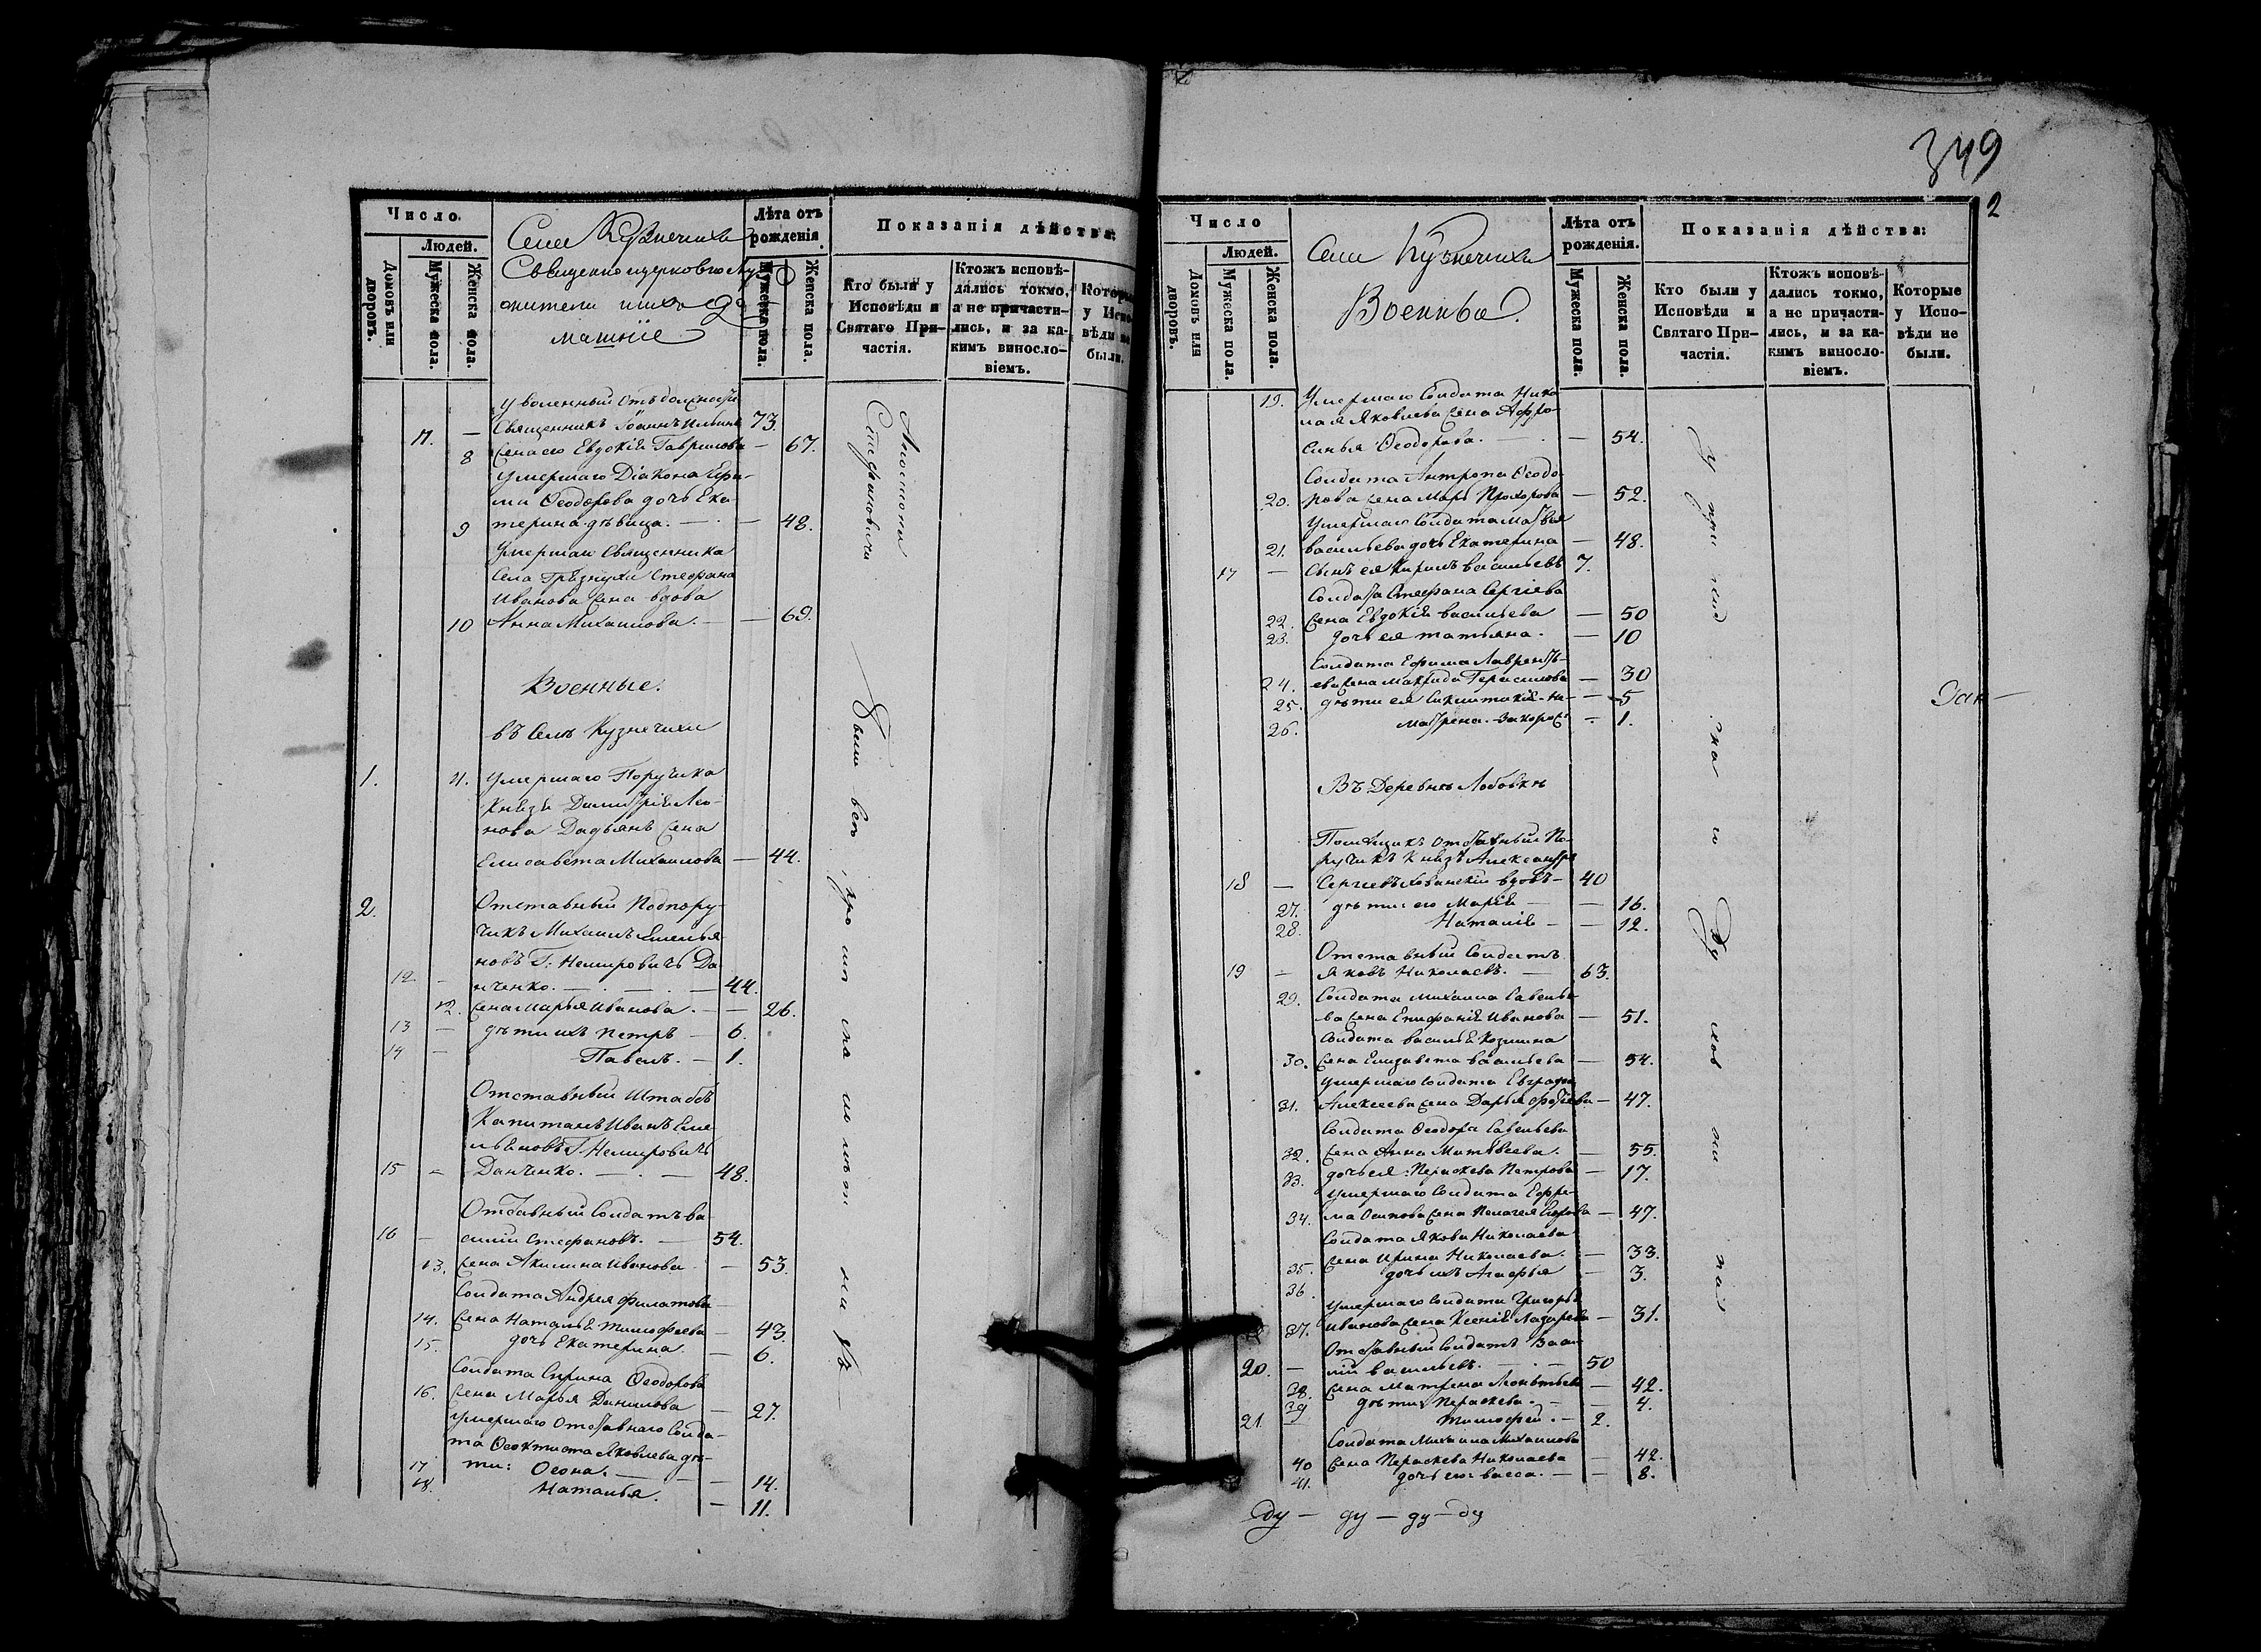 Число.
Людей.
Домовъ или дворовъ.
Мужеска пола.
Женска пола.
Села Кузнечихи
Священноцерковнослу
жители и ихъ до
машніе
Лѣта отъ рождения.
Мужеска пола.
Женска пола.
Показанія дѣйства:
Кто были у Исповѣди и Святаго Причастія.
Ктожъ исповѣдались токмо, а не причастились, и за какимъ винословіемъ.
Которые у Исповѣди не были.
Уволенный отъ должности
11. — Священникъ Іоаннъ Ильинъ 73.
8 Жена его Евдокія Гаврилова — 67.
Умершаго Діакона Ефи-
ма Ѳеодорова дочь Ека-
9 терина дѣвица. — 48.
Умершаго Священника
Села Грязнухи Стефана
Иванова жена вдова
10 Анна Михаилова. — 69.
Военные.
въ Селѣ Кузнечихи
1. 11. Умершаго Поручика
Князя Димитрія Лео-
нова Дадьянъ жена
Елисавета Михаилова — 44.
2. Отставный Подпору-
чикъ Михаилъ Емелья-
новъ Г: Немировичъ Да-
12 — нченко. — 44.
12. Жена Марья Иванова. — 26.
13 — дѣти ихъ Петръ — 6.
14 — Павелъ. — 1.
Отставный Штабсъ
Капитанъ Иванъ Еме
льяновъ Г. Немировичъ
15 — Данченко. — 48.
Отставный Солдатъ Ва
16 — силій Стефановъ. — 54.
13. Жена Акилина Иванова — 53.
Солдата Андрея Филатова
14. Жена Наталья Тимофеева — 43
15. дочь Екатерина. — 6.
Солдата Спирина Ѳеодорова
16. Жена Марья Данилова — 27.
Умершаго Отставнаго Солда-
та Ѳеоктиста Яковлева дѣ-
17 ти: Ѳеона. — 14.
18. Наталья. — 11.
были всѣ
349
2
Число
Людей.
Домовъ или дворовъ.
Мужеска пола.
Женска пола.
Села Кузнечихи
Военные.
Лѣта отъ рожденія.
Мужеска пола.
Женска пола.
Показанія дѣйства:
Кто были у Исповѣди и Святаго Причастія.
Ктожъ исповѣдались токмо, а не причастились, и за какимъ винословіемъ.
Которые у Исповѣди не были.
19. Умершаго Солдата Нико
лая Яковлева жена Афро-
синья Ѳеодорова. — 54.
Солдата Антропа Ѳеодо-
20. рова жена Марья Прохорова — 52.
Умершаго Солдата Матвея
21. Васильева дочь Екатерина — 48.
17 — Сынъ ея Кирилъ Васильевъ 7.
Солдата Стефана Сергіева
22. Жена Евдокія Васильева — 50
23. дочь ея Татьяна. — 10
Солдата Ефима Лавренть-
24. ева жена Макрида Герасимова — 30
25. дѣти ея — 5
26. Матрена. — 1.
Въ Деревнѣ Лобовкѣ
Помѣщикъ Отставный По-
ручикъ Князь Александръ
18 — Сергіевъ Хованскій вдовъ — 40
27. дѣти: его Марія — 16.
28. Наталія — 12.
Отставный Солдатъ
19 — Яковъ Николаевъ. — 63.
29. Солдата Михаила Савелье-
ва жена Епифанія Иванова — 51.
Солдата Василья Козмина
30. Жена Елизавета Васильева — 54.
Умершаго Солдата Евграфа
31. Алексеева жена Дарья — 47.
Солдата Ѳеодора Савельева
32. Жена Анна Матвеева. — 55.
33. дочь ея: Параскева Петрова — 17.
Умершаго Солдата Ефре-
34. ма Осипова жена Пелагея — 47.
Солдата Якова Николаева
35. Жена Ирина Николаева. — 33.
36. дочь ихъ Агафья — 3.
Умершаго Солдата Григорья
37. Иванова жена Ксенія Лазарева — 31.
Отставный Солдатъ Васи-
20. — лій Васильевъ. — 50
38. Жена Матрена Леонтьева — 42.
39 дѣти: Параскева. — 4.
21. — Тимофей. — 2.
Солдата Михаила Михаилова
40 Жена Параскева Николаева — 42.
41. дочь его: Васса. — 8.
ду — ду — ду — ду